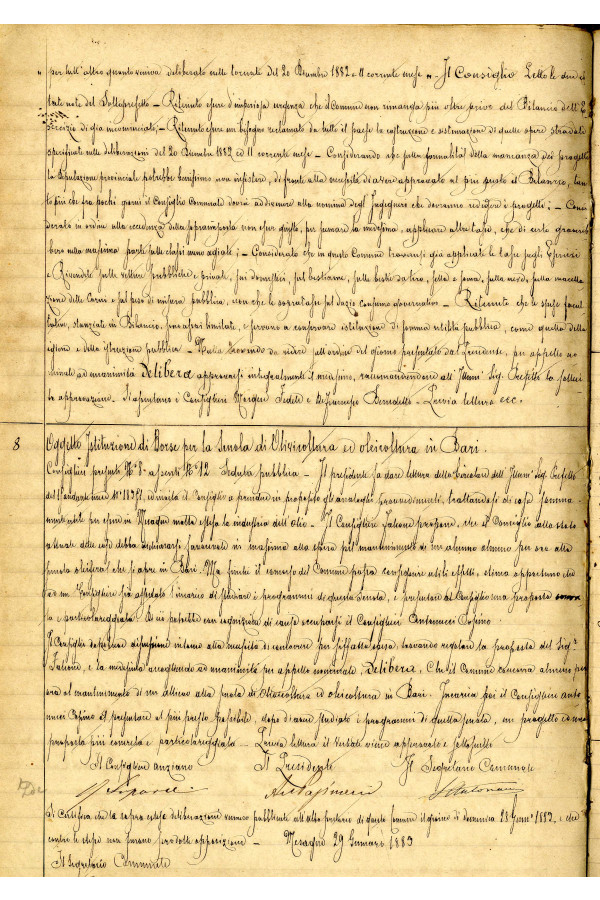 per tutt'altro quanto veniva deliberato nelle tornate del 20 Dicembre 1882 e 11 corrente mese „ - Il Consiglio Letto le due ci
tate note del Sottoprefetto - Ritenuto essere d'imperiosa urgenza che il Comune non rimanga più oltre privo del Bilancio dell'E
sercizio di già incominciato; - Ritenuto essere un bisogno reclamato da tutto il paese la costruzione e sistemazione di quelle opere stradali
specificate nelle deliberazioni del 20 Dicembre 1882 ed 11 corrente mese - Considerando che sulla formalità della mancanza dei progetti
la Deputazione provinciale potrebbe benissimo non insistere, di fronte alla necessità di avere approvato al più presto il Bilancio, tan
to più che tra pochi giorni il Consiglio Comunale dovrà addivenire alla nomina degl'Ingegneri che dovranno redigere i progetti; - Consi
derato in ordine alla eccedenza della sovraimposta non esser giusto, per scemare la medesima, applicare altre tasse, che di certo graverеb
bero nella massima parte sulle classi meno agiate; - Considerato che in questo Comune trovansi già applicate le tasse sugli Esercizi
e Rivendite sulle vetture pubbliche e private, sui domestici, sul bestiame, sulle bestie da tiro, sella e soma, sulla macella
zione delle Carni e sul peso di misura pubblica, non che le sovratasse sul dazio consumo governativo - Ritenuto che le spese facol
tative, stanziate in Bilancio, sono assai limitate, e servono a conservare istituzioni di somma utilità pubblica, come quella della
igiene e della istruzione pubblica - Nulla trovando da ridire sull'ordine del giorno presentato dal Presidente, per appello no
minale ad unanimità Delibera approvarsi integralmente il medesimo, raccomandandone all'Illmo Sig. Prefetto la solleci
ta approvazione. Si astennero i Consiglieri Fedele e Benedetto - Previa lettura ecc.
8
Oggetto Istituzione di Borse per la Scuola di Olivicoltura ed oleicoltura in Bari.
Consiglieri presenti No 8 - assenti No 12 Seduta pubblica - Il presidente fa dare lettura della Circolare dell'Illmo Sig. Prefetto
del ed invita il Consiglio a prendere in proposito gli analoghi provvedimenti, trattandosi di cosa somma
mente utile per essere in Mesagne molto estesa la industria dell'olio - Il Consigliere propone, che il Consiglio allo stato
attuale delle cose debba dichiararsi favorevole in massima alla spesa pel mantenimento di un alunno almeno per ora alla
scuola olearia che si apre in Bari. Ma perchè il concorso del Comune possa conseguire utili effetti, stima opportuno che
ad un Consigliere sia affidato l'incarico di studiare i programmi di questa Scuola, e presentare al Consiglio una proposta concre
ta e particolareggiata. Di ciò potrebbe con cognizione di causa occuparsi il Consigliere Antonucci
Il Consiglio dopo breve discussione intorno alla necessità di concorrere per siffatta spesa, trovando regolare la proposta del Sig.
e la medesima accogliendo ad unanimità per appello nominale, Delibera, Che il Comune concorra almeno per
ora al mantenimento di un allievo alla scuola di Olivicoltura ed oleicoltura in Bari. Incarica poi il Consigliere Anto
nucci di presentare al più presto possibile, dopo di aver studiato i programmi di quella scuola, un progetto ed una
proposta più concreta e particolareggiata - Previa lettura il verbale viene approvato e sottoscritto
Il Consigliere anziano Il Presidente Il Segretario Comunale
Si certifica che la sopra estesa deliberazione venne pubblicata all'albo pretorio di questo Comune il giorno di Domenica 28 Genno 1883, e che
contro la stessa non furono prodotte opposizioni - Mesagne 29 Gennaro 1883
Il Segretario Comunale